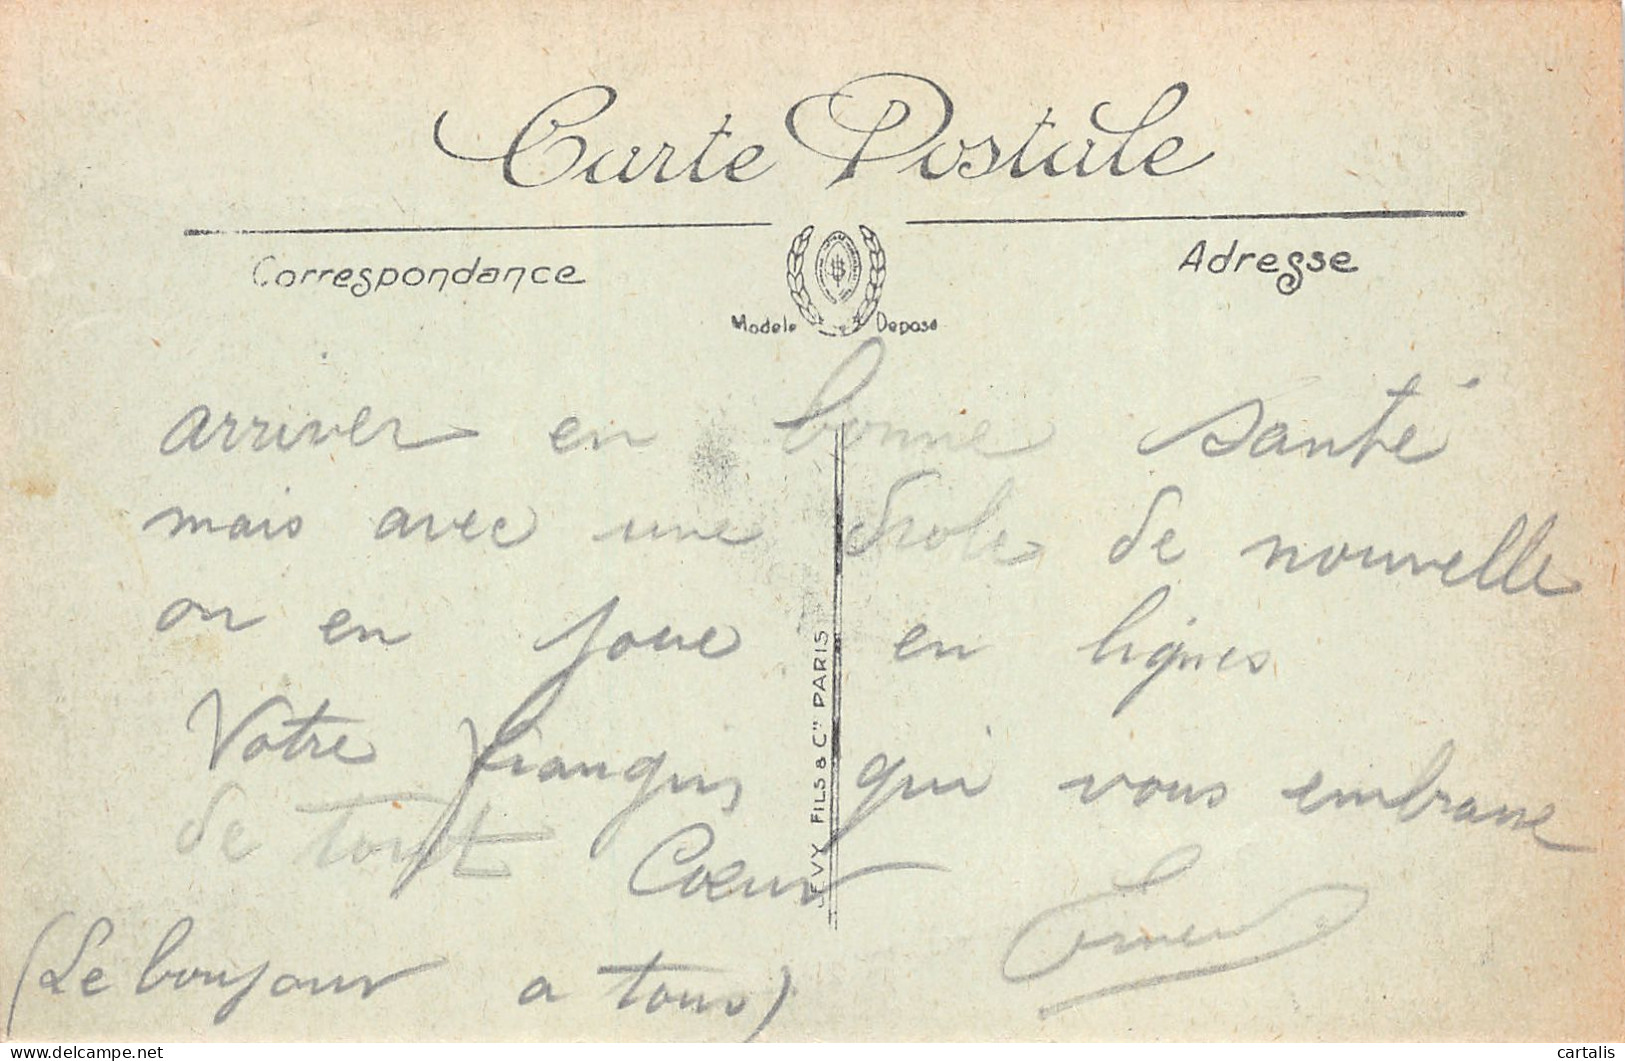 Carte Postale
Correspondance
Adresse
Modele Deposé
arriver en bonne santé
mais avec une drole de nouvelle
on en joue en lignes
Votre qui vous embrasse
de tout Coeur
(Le bonjour a tous)
LEVY FILS & Cie PARIS
cartalis